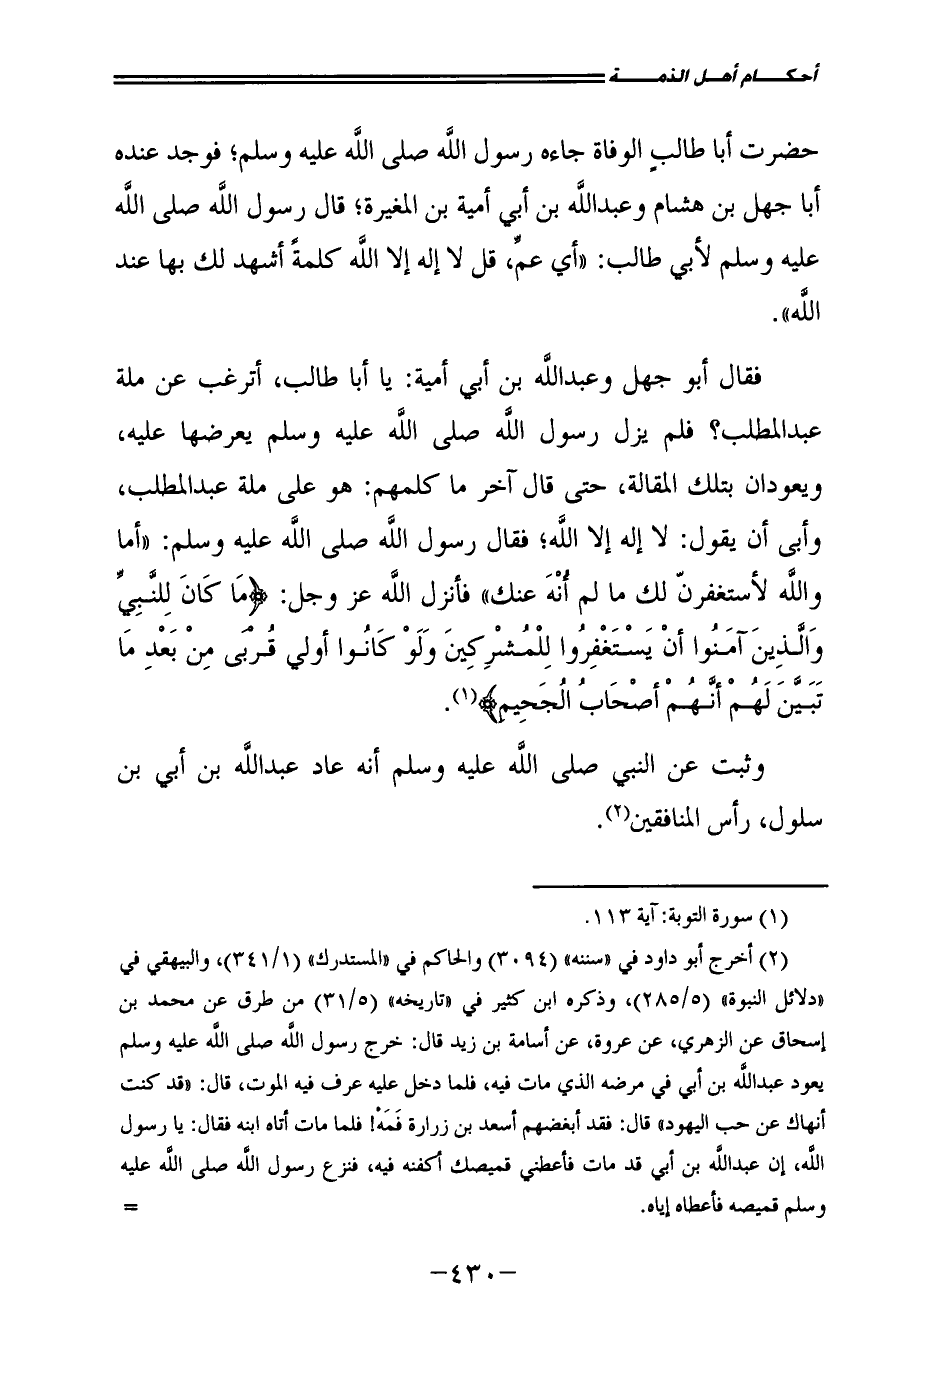 أحكام أهل الذمة
حضرت أبا طالبٍ الوفاة جاءه رسول اللَّه صلى اللَّه عليه وسلم؛ فوجد عنده
أبا جهل بن هشام وعبداللَّه بن أبي أمية بن المغيرة؛ قال رسول اللَّه صلى اللَّه
عليه وسلم لأبي طالب: «أي عمِّ، قل لا إله إلا اللَّه كلمةً أشهد لك بها عند
اللَّه».
فقال أبو جهل وعبداللَّه بن أبي أمية: يا أبا طالب، أترغب عن ملة
عبدالمطلب؟ فلم يزل رسول اللَّه صلى اللَّه عليه وسلم يعرضها عليه،
ويعودان بتلك المقالة، حتى قال آخر ما كلمهم: هو على ملة عبدالمطلب،
وأبى أن يقول: لا إله إلا اللَّه؛ فقال رسول اللَّه صلى اللَّه عليه وسلم: «أما
واللَّه لأستغفرنّ لك ما لم أُنْهَ عنك» فأنزل اللَّه عز وجل: ﴿مَا كَانَ لِلنَّبِيِّ
وَالَّذِينَ آمَنُوا أنْ يَسْتَغْفِرُوا لِلْمُشْرِكِينَ وَلَوْ كَانُوا أولي قُرْبَى مِنْ بَعْدِ مَا
تَبَيَّنَ لَهُمْ أنَّهُمْ أصْحَابُ الُجَحيمِ﴾(١).
وثبت عن النبي صلى اللَّه عليه وسلم أنه عاد عبداللَّه بن أبي بن
سلول، رأس المنافقين(٢).
(١) سورة التوبة: آية ١١٣.
(٢) أخرج أبو داود في «سننه» (٣٠٩٤) والحاكم في «المستدرك» (٣٤١/١)، والبيهقي في
«دلائل النبوة» (٢٨٥/٥)، وذكره ابن كثير في «تاريخه» (٣١/٥) من طرق عن محمد بن
إسحاق عن الزهري، عن عروة، عن أسامة بن زيد قال: خرج رسول اللَّه صلى اللَّه عليه وسلم
يعود عبداللَّه بن أبي في مرضه الذي مات فيه، فلما دخل عليه عرف فيه الموت، قال: «قد كنت
أنهاك عن حب اليهود» قال: فقد أبغضهم أسعد بن زرارة فَمَهْ! فلما مات أتاه ابنه فقال: يا رسول
اللَّه، إن عبداللَّه بن أبي قد مات فأعطني قميصك أكفنه فيه، فنزع رسول اللَّه صلى اللَّه عليه
وسلم قميصه فأعطاه إياه. =
-٤٣٠-